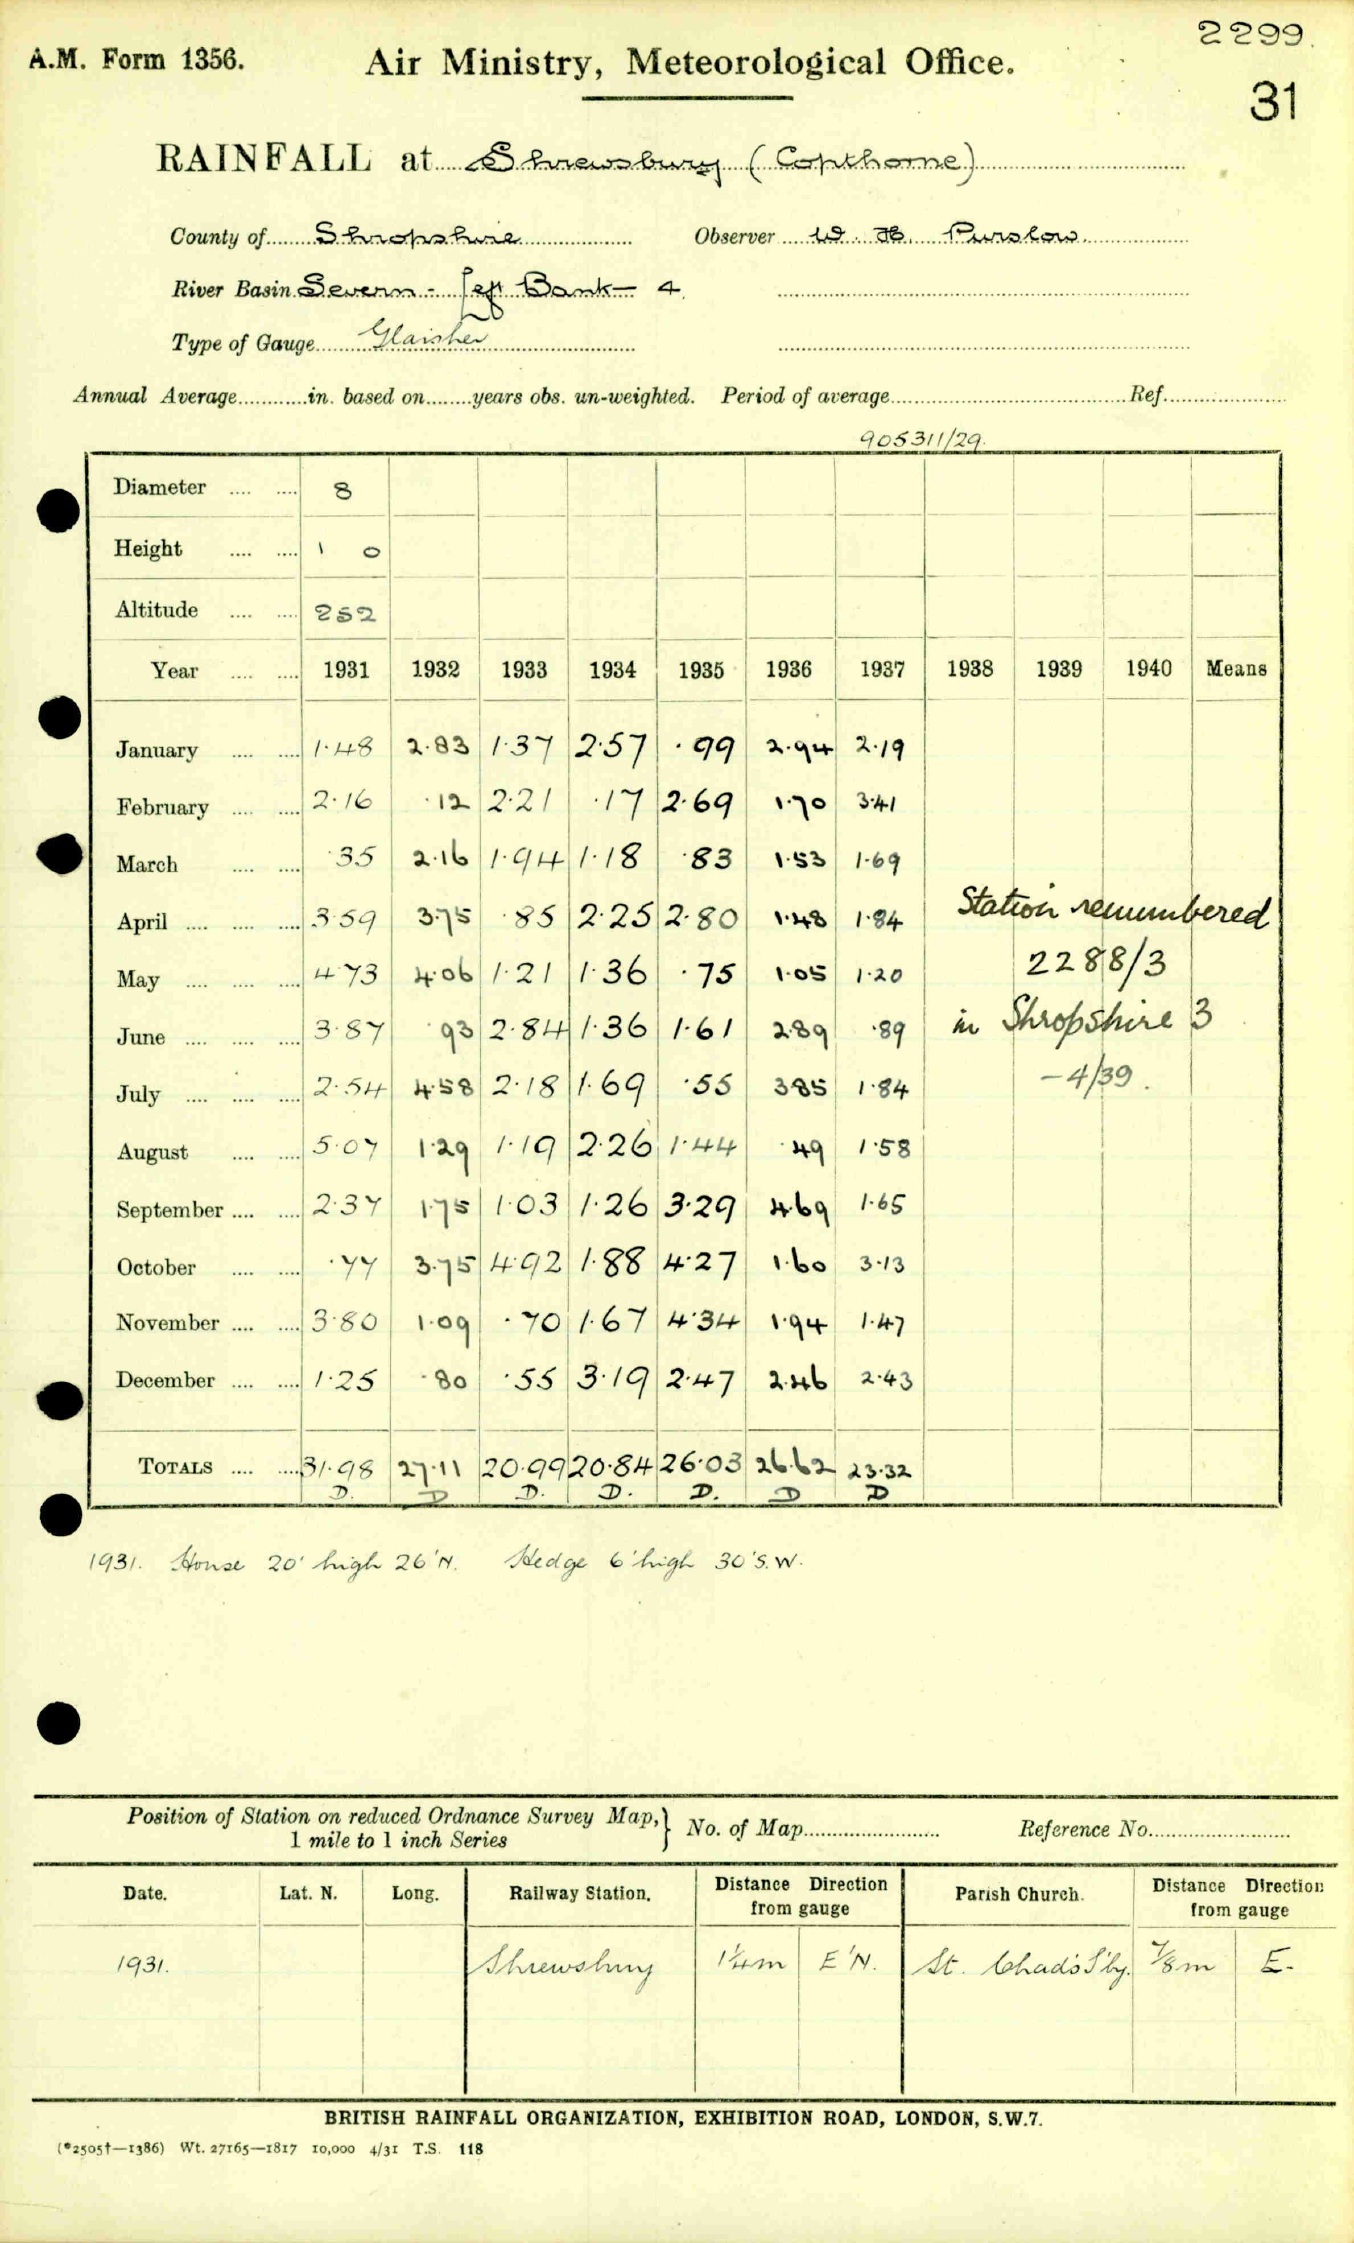 2299.
A.M. Form 1356. Air Ministry, Meteorological Office.
31
RAINFALL at Shrewsbury (Copthorne)
County of Shropshire Observer W. H. Purslow.
River Basin Severn - Left Bank - 4.
Type of Gauge Glaisher
Annual Average............in. based on........years obs. un-weighted. Period of average.......................................Ref.....................
905311/29.
Diameter .... .... 8
Height .... .... 1 0
Altitude .... .... 252
Year .... .... 1931 1932 1933 1934 1935 1936 1937 1938 1939 1940 Means
January .... .... 1·48 2·83 1·37 2·57 ·99 2·94 2·19
February .... .... 2·16 ·12 2·21 ·17 2·69 1·70 3·41
March .... .... ·35 2·16 1·94 1·18 ·83 1·53 1·69
April .... .... .... 3·59 3·75 ·85 2·25 2·80 1·48 1·84 Station renumbered
May .... .... .... 4·73 4·06 1·21 1·36 ·75 1·05 1·20 2288/3
June .... .... .... 3·87 ·93 2·84 1·36 1·61 2·89 ·89 in Shropshire 3
July .... .... .... 2·54 4·58 2·18 1·69 ·55 3·85 1·84 -4/39.
August .... .... 5·07 1·29 1·19 2·26 1·44 ·49 1·58
September .... .... 2·37 1·75 1·03 1·26 3·29 4·69 1·65
October .... .... ·77 3·75 4·92 1·88 4·27 1·60 3·13
November .... .... 3·80 1·09 ·70 1·67 4·34 1·94 1·47
December .... .... 1·25 ·80 ·55 3·19 2·47 2·46 2·43
TOTALS .... .... 31·98 27·11 20·99 20·84 26·03 26·62 23·32
D. D D. D. D. D D
1931. House 20' high 26'N. Hedge 6'high 30'S.W.
Position of Station on reduced Ordnance Survey Map,} No. of Map........................ Reference No.........................
1 mile to 1 inch Series
Date. Lat. N. Long. Railway Station. Distance Direction from gauge Parish Church. Distance Direction from gauge
1931. Shrewsbury 1¼m E'N. St. Chad's S'by. 7/8m E.
BRITISH RAINFALL ORGANIZATION, EXHIBITION ROAD, LONDON, S.W.7.
(*2505†—1386) Wt. 27165—1817 10,000 4/31 T.S. 118